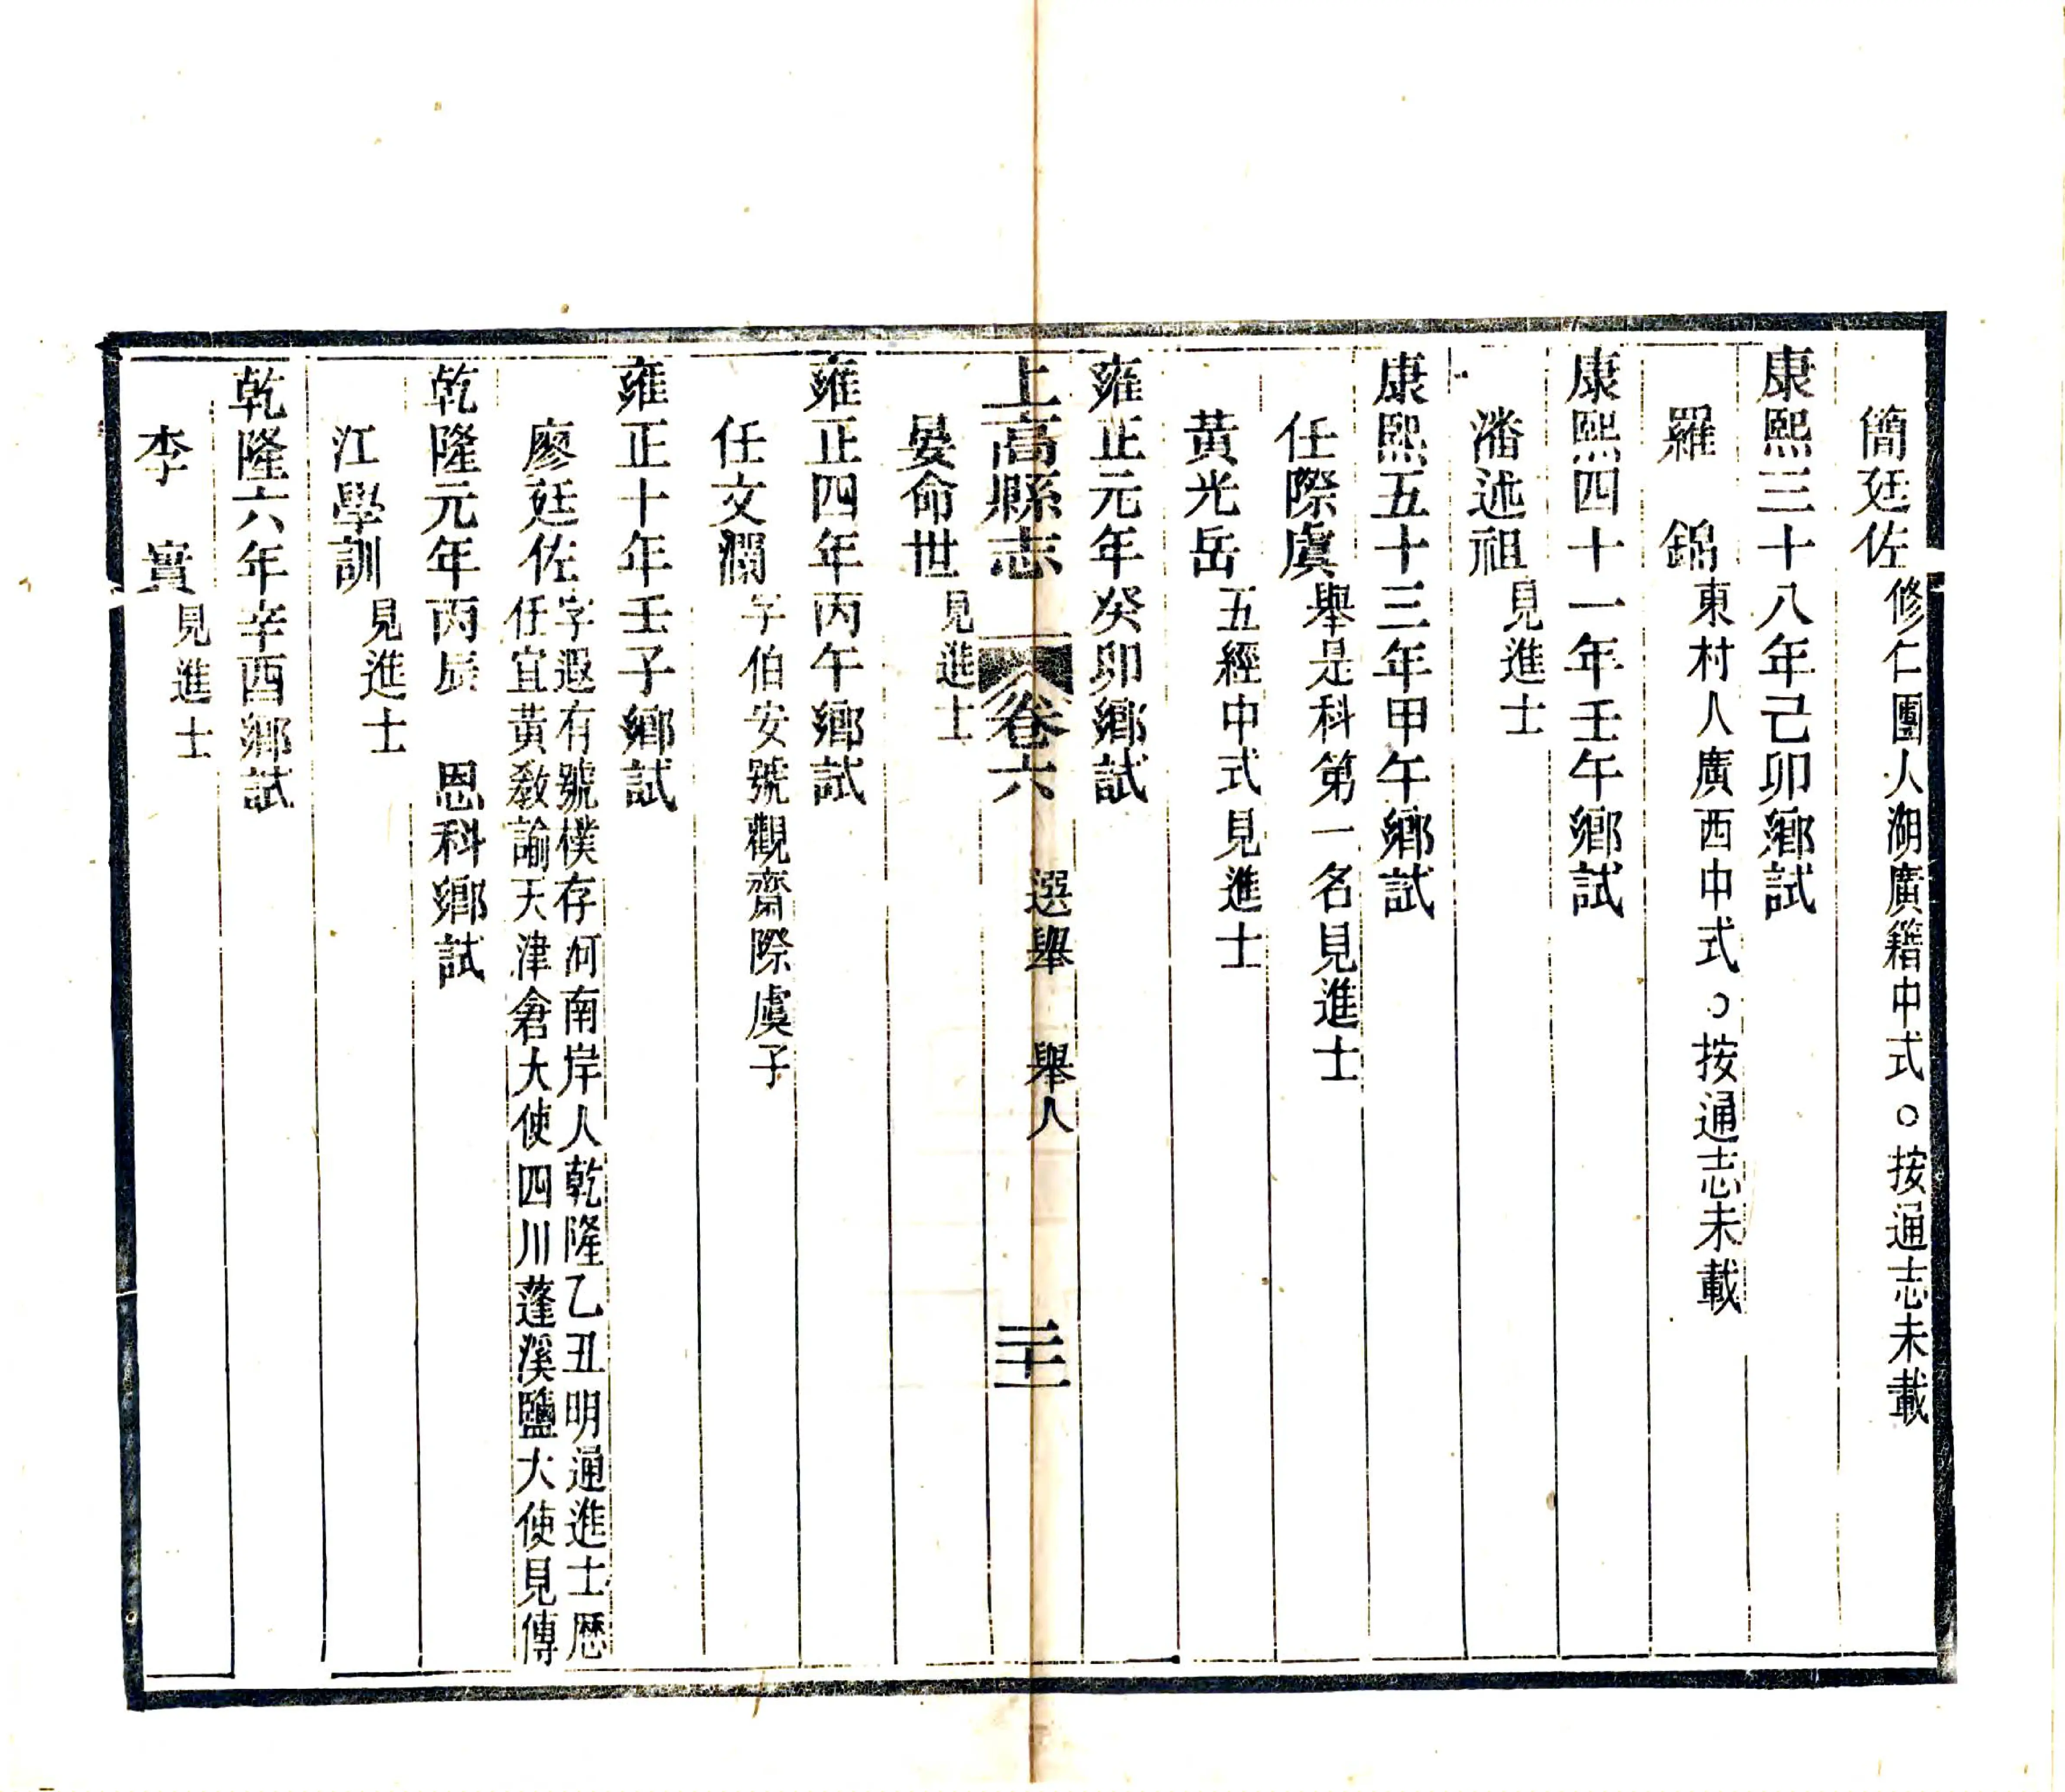 簡廷佐修仁團人湖廣籍中式○按通志未載
康熙三十八年己卯鄉試
羅錦東村人廣西中式○按通志未載
康熙四十一年壬午鄉試
潘述祖見進士
康熙五十三年甲午鄉試
任際虞舉是科第一名見進士
黃光岳五經中式見進士
雍正元年癸卯鄉試
上高縣志卷六 選舉 舉人 二十一
晏命世見進士
雍正四年丙午鄉試
任文瀾字伯安號觀齋際虞子
雍正十年壬子鄉試
廖廷佐字遐有號樸存河南岸人乾隆乙丑明通進士歷
任宜黃敎諭天津倉大使四川蓬溪鹽大使見傳
乾隆元年丙辰 恩科鄉試
江學訓見進士
乾隆六年辛酉鄉試
李實見進士